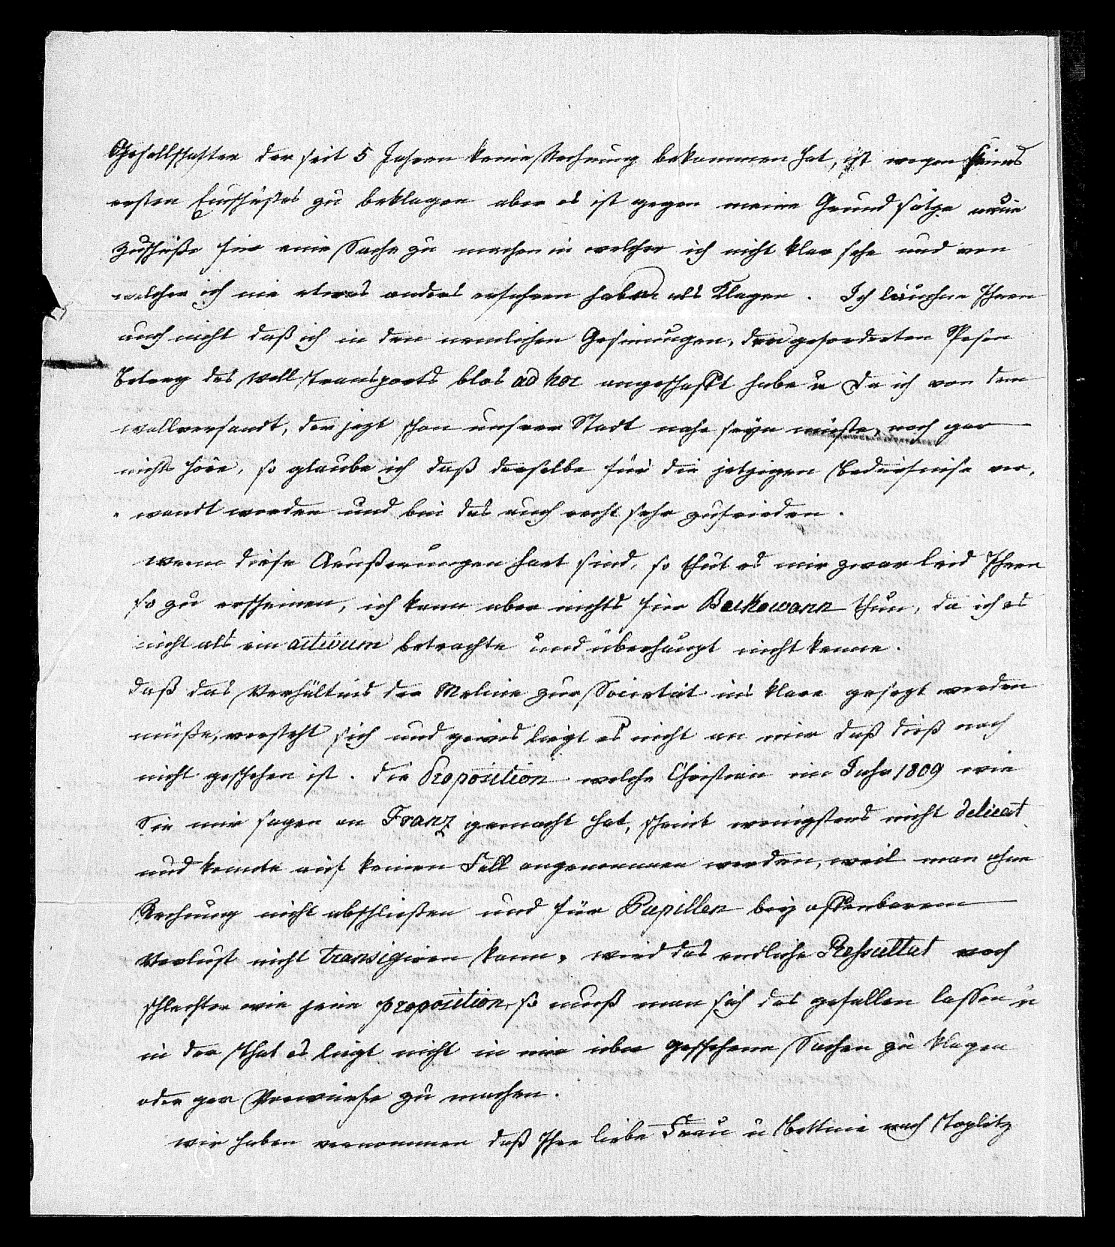 Gesellschafter der seit 5 Jahren keine Rechnung bekommen hat, ist wegen seines
ersten Einschußes zu beklagen aber es ist gegen meine Grundsätze neue
Zuschüße für eine Sache zu machen in welcher ich nicht klar sehe und von
welcher ich nie etwas anders erfahren habe als Klagen. Ich läugne Ihnen
auch nicht daß ich in den nemlichen Gesinnungen, den geforderten Spesen
Betrag des Wolltransports blos ad hoc angeschafft habe u da ich von dem
Wollversandt, der jezt schon unsrer Stadt nahe seyn müßte, noch gar
nichts höre, so glaube ich daß derselbe für die jetzigen Bedürfniße ver,
wandt worden und bin das auch recht sehr zufrieden.
Wenn diese Aeußerungen hart sind, so thut es mir zwar leid Ihnen
so zu erscheinen, ich kann aber nichts für Buckowann thun, da ich es
nicht als ein activum betrachte und überhaupt nicht kenne.
Daß das Verhältnis der Meline zur Societät ins klare gesezt werden
müße, versteht sich und gewis liegt es nicht an mir daß dieß noch
nicht geschehen ist. Die Proposition welche Christian im Jahr 1809 wie
Sie mir sagen an Franz gemacht hat, scheint wenigstens nicht delicat
und konnte auf keinen Fall angenommen werden, weil man ohne
Rechnung nicht abschließen und für Pupillen bey offenbarem
Verlust nicht transigiren kann, wird das endliche Resultat noch
schlechter wie jene proposition, so muß man sich das gefallen lassen u
in der That es liegt nicht in mir über geschehene Sachen zu klagen
oder gar Vorwürfe zu machen.
Wir haben vernommen daß Ihre liebe Frau u Bettine nach Töplitz